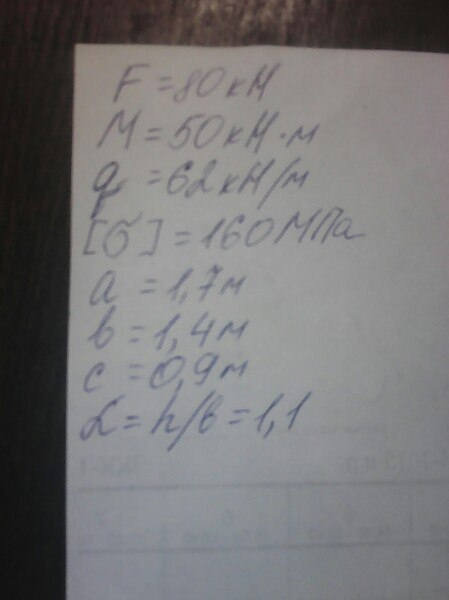 F = 80 кН
М = 50 кН·м
q = 62 кН/м
[σ] = 160 МПа
a = 1,7 м
в = 1,4 м
с = 0,9 м
α = h/в = 1,1